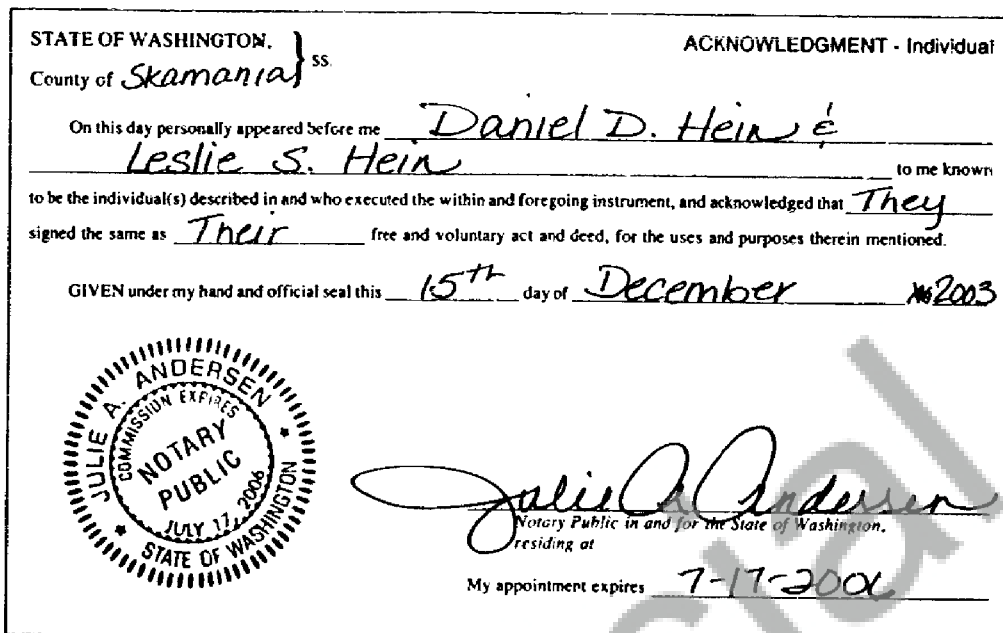 STATE OF WASHINGTON,
County of Skamania } ss.
ACKNOWLEDGMENT - Individual
On this day personally appeared before me Daniel D. Hein &
Leslie S. Hein to me known
to be the individual(s) described in and who executed the within and foregoing instrument, and acknowledged that They
signed the same as Their free and voluntary act and deed, for the uses and purposes therein mentioned.
GIVEN under my hand and official seal this 15th day of December 2003
JULIE A. ANDERSEN
COMMISSION EXPIRES
NOTARY
PUBLIC
JULY 17, 2006
STATE OF WASHINGTON
Julie A Andersen
Notary Public in and for the State of Washington,
residing at
My appointment expires 7-17-2006